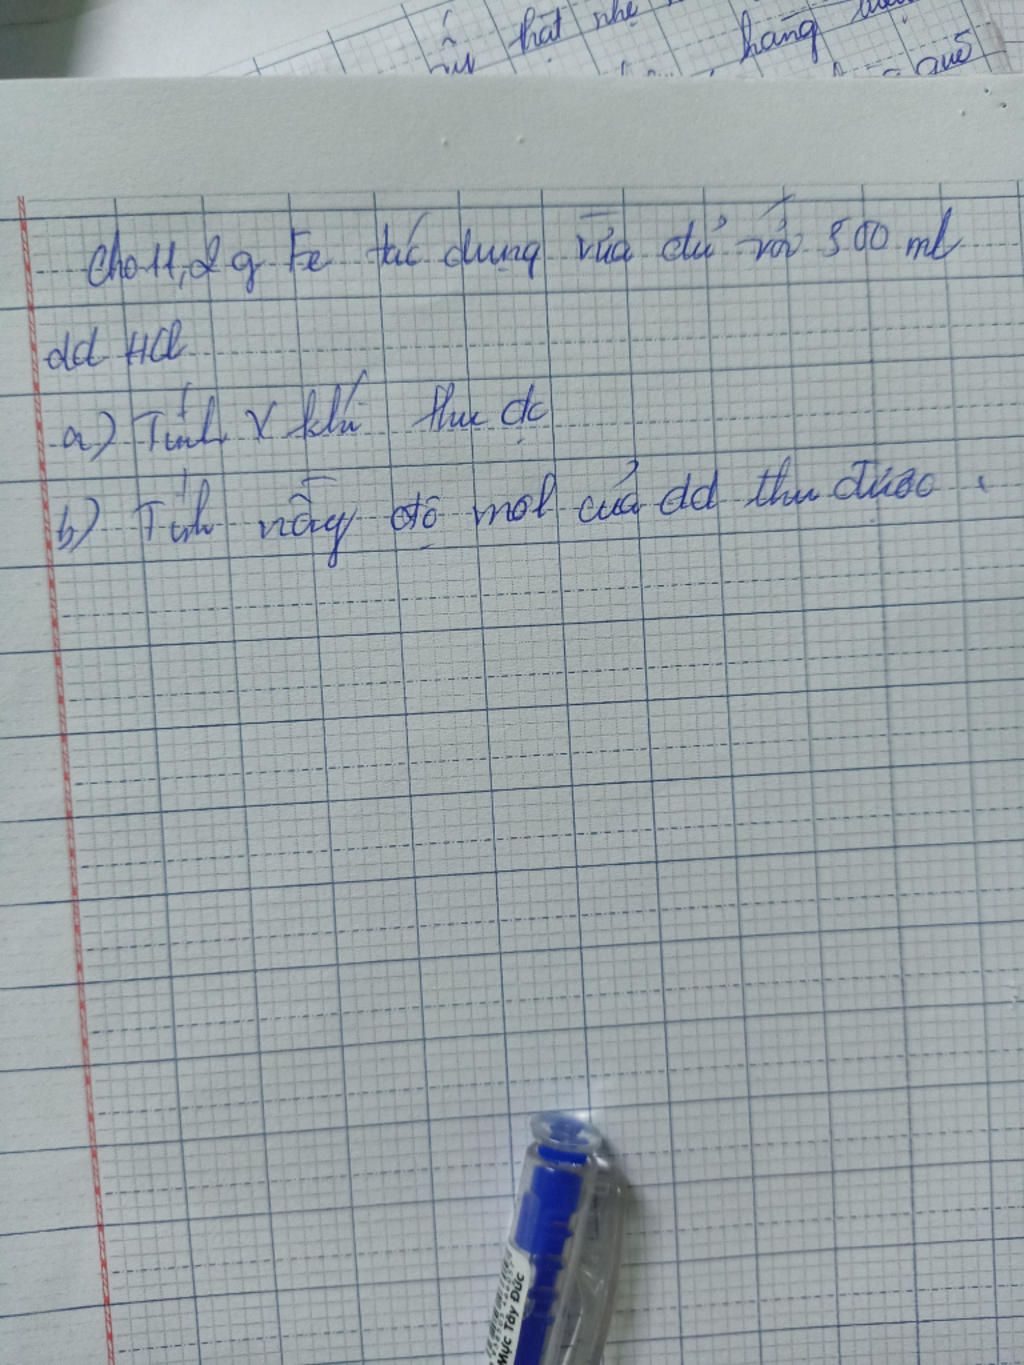 thật nhẹ
hàng
quê
Cho 11,2 g Fe tác dụng vừa đủ với 500 ml
dd HCl
a) Tính V khí thu đc
b) Tính nồng độ mol của dd thu được.
Mực Tây Đức